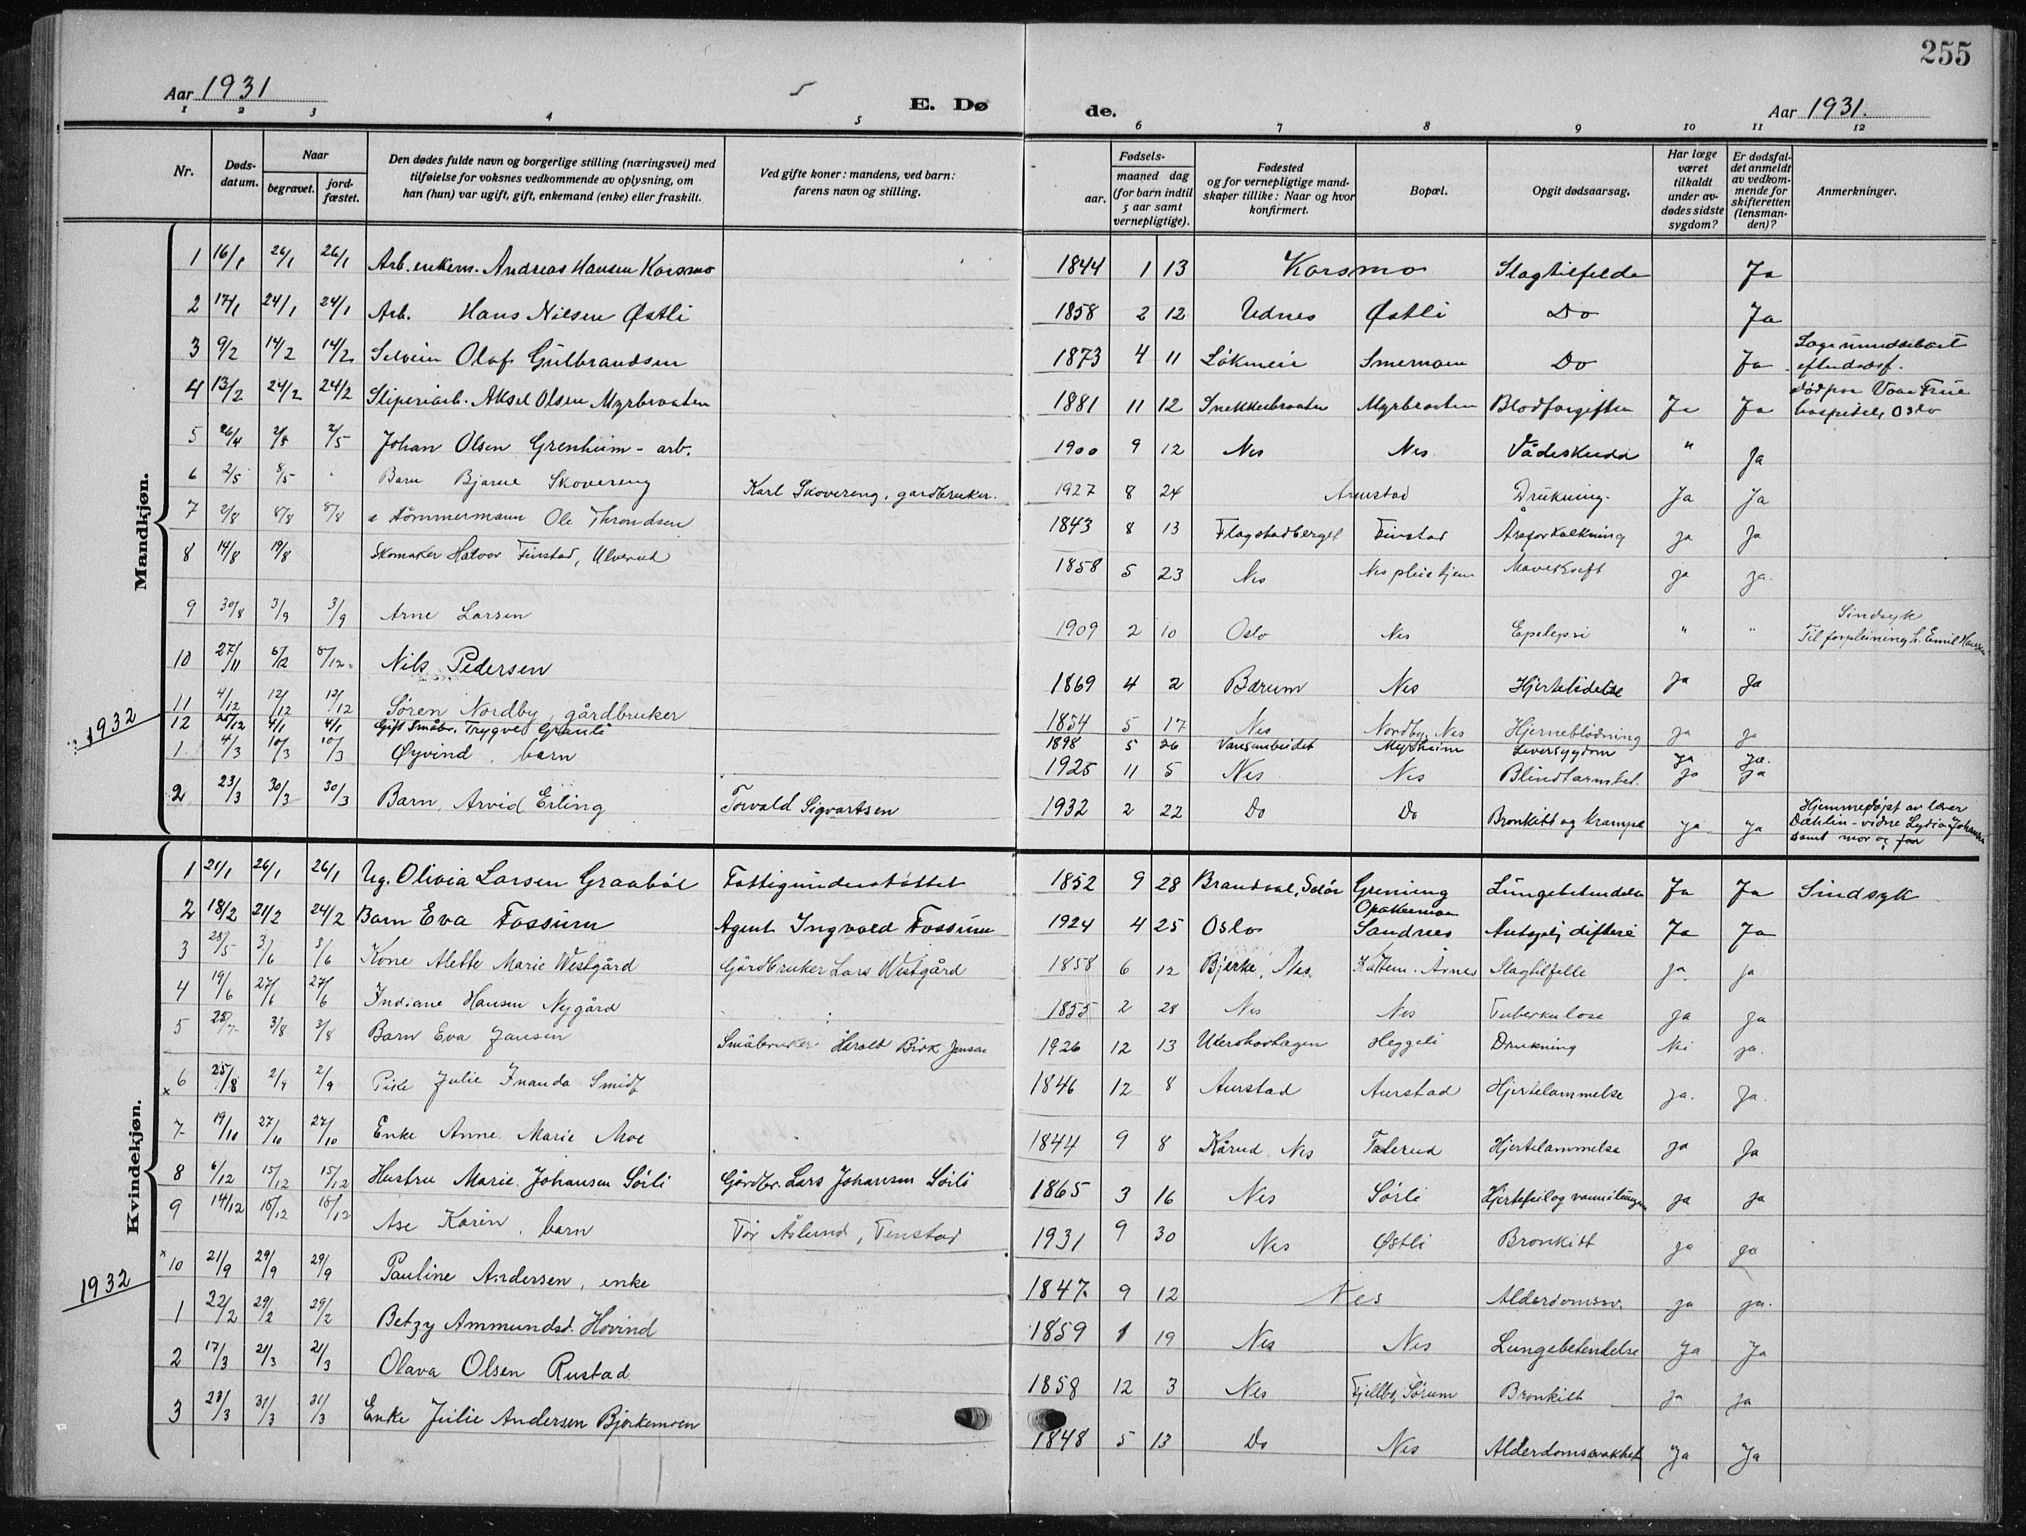 255
Aar 1931
E. Dø
de.
Aar 1931.
1 2 3 4 5 6 7 8 9 10 11 12
Nr.
Døds-
datum.
Naar
begravet.
jord-
fæstet.
Den dødes fulde navn og borgerlige stilling (næringsvei) med
tilføielse for voksnes vedkommende av oplysning, om
han (hun) var ugift, gift, enkemand (enke) eller fraskilt.
Ved gifte koner: mandens, ved barn:
farens navn og stilling.
Fødsels-
aar.
maaned dag
(for barn indtil
5 aar samt
vernepligtige).
Fødested
og for vernepligtige mand-
skaper tillike: Naar og hvor
konfirmert.
Bopæl.
Opgit dødsaarsag.
Har læge
været
tilkaldt
under av-
dødes sidste
sygdom?
Er dødsfal-
det anmeldt
av vedkom-
mende for
skifteretten
(lensman-
den)?
Anmerkninger.
Mandkjøn.
1 16/1 26/1 26/1 Arb. enkem. Andreas Hansen Korsmo 1844 1 13 Korsmo Slagtilfelde Ja
2 17/1 24/1 24/1 Arb. Hans Nilsen Østli 1858 2 12 Udnes Østli Do Ja
3 9/2 14/2 14/2 Olaf Gulbrandsen 1873 4 11 Løkmeie Do Ja
4 13/2 24/2 24/2 Aksel Olsen Myrbraaten 1881 11 12 Snekkerbraaten Myrbraaten Blodforgiften Ja Ja Død paa Vaar Frue
hospital, Oslo
5 26/4 2/5 2/5 Johan Olsen Grenheim - arb. 1900 9 12 Nes Nes Vådeskudd " Ja
6 2/5 8/5 Barn Bjarne Skovereng Karl Skovereng, gardbruker. 1927 8 24 Aurstad Drukning. Ja Ja
7 2/8 8/8 8/8 Tømmermann Ole Throndsen 1843 8 13 Flagstadberget Finstad Åreforkalkning Ja Ja
8 14/8 19/8 Skomaker Halvor Finstad, Ulverud 1858 5 23 Nes Nes pleiehjem Mavekreft ja ja.
9 30/8 3/9 3/9 Arne Larsen 1909 2 10 Oslo Nes Epelepsi " " Sindsyk
Til forpleining h. Emil Hansen
10 27/11 6/12 6/12. Nils Pedersen 1869 4 2 Bærum Nes Hjertelidelse Ja Ja
11 4/12 12/12 12/12 Søren Nordby, gårdbruker 1854 5 17 Nes Nordby, Nes Hjerneblødning ja ja
12 4/1 4/1 Gift Småbr. Trygve Granli 1898 5 26 Myrheim Leversygdom Ja Ja.
1932
1 4/3 10/3 10/3 Øyvind, barn 1925 11 5 Nes Nes Blindtarmsbet. ja ja
2 23/3 30/3 30/3 Barn Arvid Erling Torvald Sigvartsen 1932 2 22 Do Do Bronkitt og krampe ja ja Hjemmedøpt av lærer
Dæhlin - vidne Lydia Johansen
samt mor og far
Kvindekjøn.
1 21/1 26/1 26/1 Ug. Olivia Larsen Graabøl Fattigunderstøttet 1852 9 28 Brandval, Solør Grening Lungebetendelse Ja Ja Sindsyk
2 18/2 21/2 24/2 Barn Eva Fossum Agent Ingvald Fossum 1924 4 25 Oslo Opakermoe
Sandnes difteri Ja Ja
3 28/5 3/6 3/6 Kone Alette Marie Westgård Gårdbruker Lars Westgård 1858 6 12 Bjerke, Nes. Årnes Slagtilfelle ja. ja
4 19/6 27/6 27/6 Indiane Hansen Nygård 1855 2 28 Nes Nes Tuberkulose ja ja
5 25/7 3/8 3/8 Barn Eva Jansen Småbruker Harald Birk Jensen 1926 12 13 Uterskovhagen Heggeli Drukning Nei ja.
x 6 25/8 2/9 2/9 Pike Julie Inanda Smidt 1846 12 8 Aurstad Aurstad Hjertelammelse ja. Ja.
7 19/10 27/10 27/10 Enke Anne Marie Moe 1844 9 8 Kårud, Nes Talerud Hjertelammelse ja Ja
8 6/12 15/12 15/12 Hustru Marie Johansen Sørli Gårdbr. Lars Johansen Sørli 1865 3 16 Nes Sørli Hjertefeil og ja ja
9 14/12 18/12 18/12 Åse Karin, barn Tor Åslund, Finstad 1931 9 30 Nes Østli Bronkitt ja ja
x 10 21/9 29/9 29/9 Pauline Andersen, enke 1847 9 12 Nes Alderdomssv. ja ja.
1932
1 22/2 29/2 29/2 Betzy Ammundsd. Hovind 1859 1 19 Nes Nes Lungebetendelse Ja Ja
2 17/3 21/3 21/3 Olava Olsen Rustad 1858 12 3 Nes Fjellbo, Sørum Bronkitt Ja Ja
3 23/3 31/3 31/3 Enke Julie Andersen Bjørkemoen 1848 5 13 Do Nes Alderdomssvakhet Ja Ja